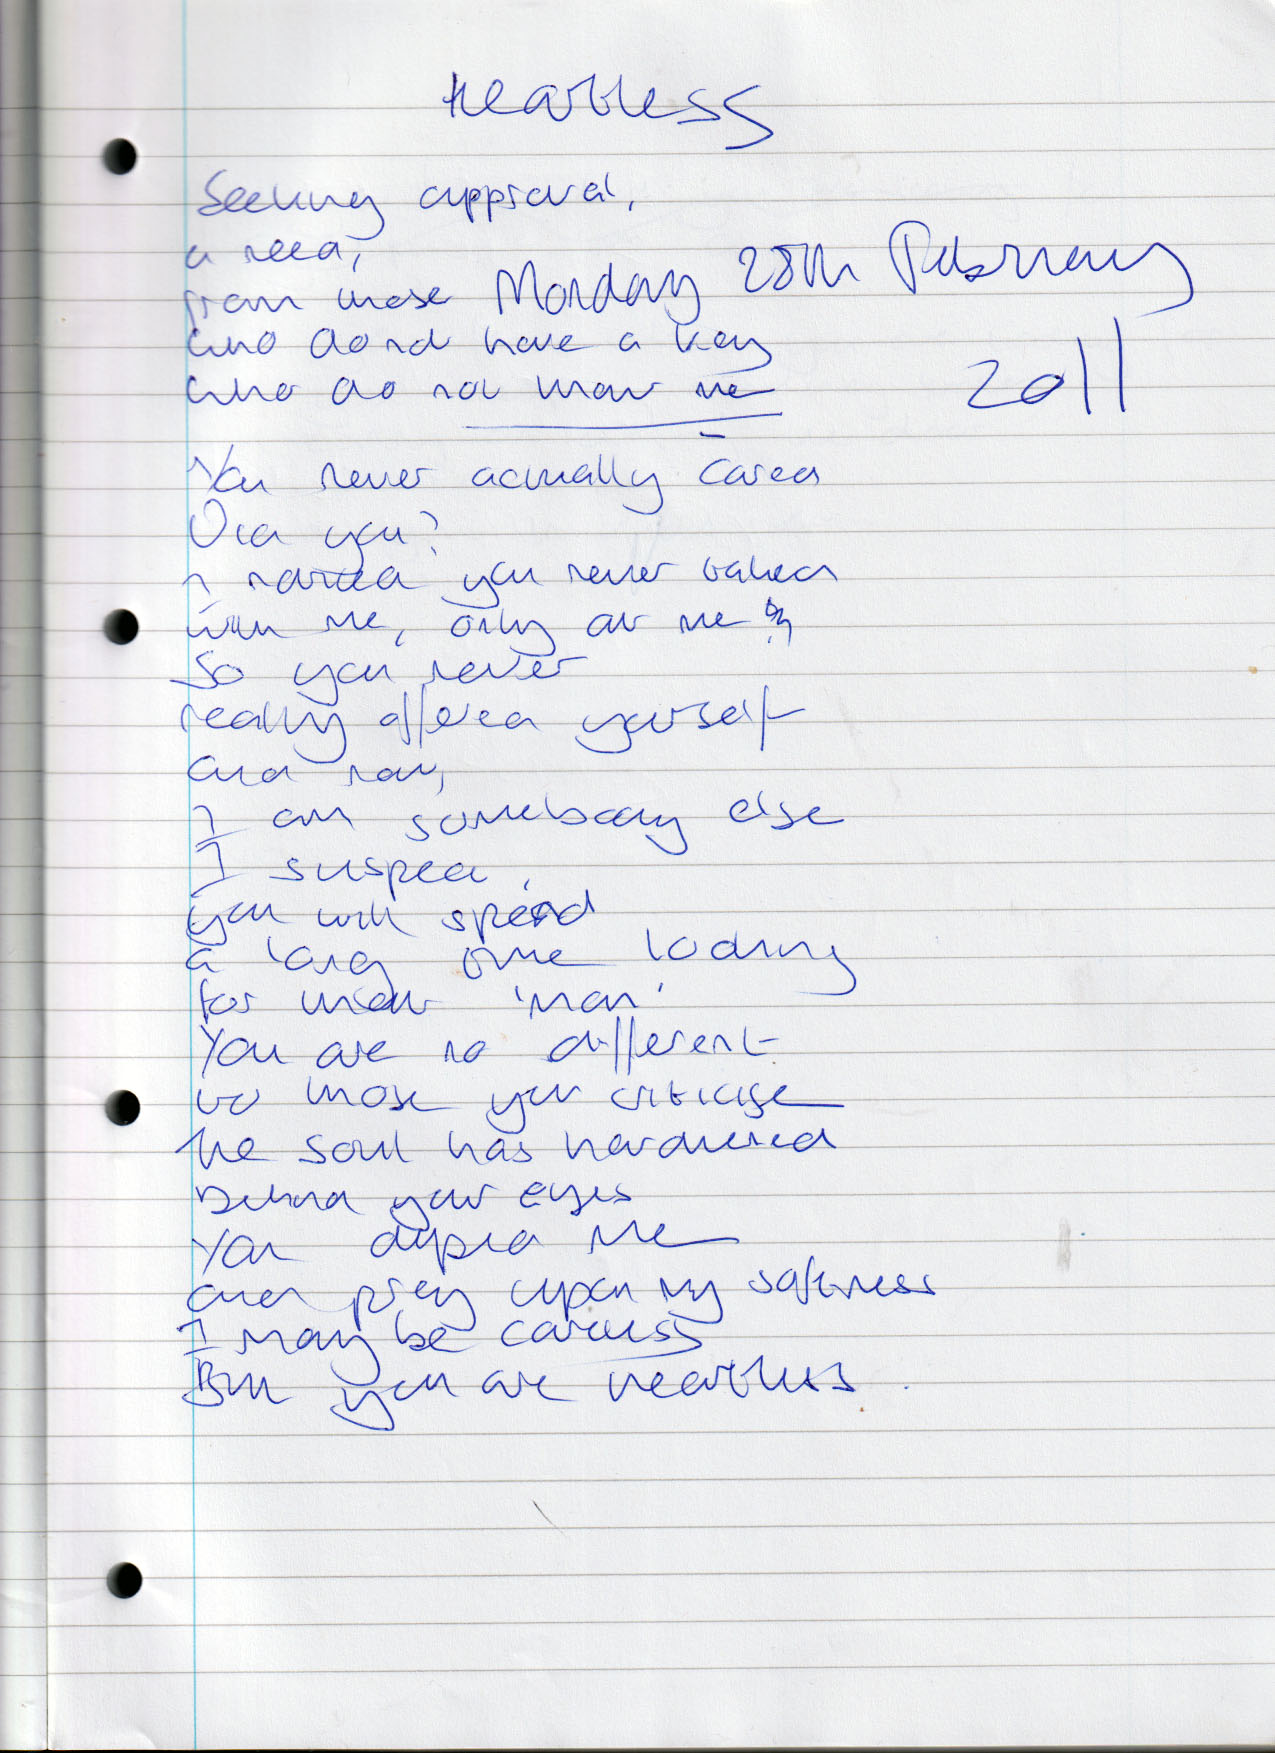 Heartless
Seeking approval,
a need,
from those
Monday 28th February
who do not have a key
2011
who do not know me
You never actually cared
Did you?
I noticed you never talked
with me, only at me
So you never
really offered yourself
and now,
I am somebody else
I suspect,
you will spend
a long time looking
for that 'man'
You are no different
to those you criticise
the soul has hardened
behind your eyes
You me
and prey upon my softness
I may be careless
But you are heartless.